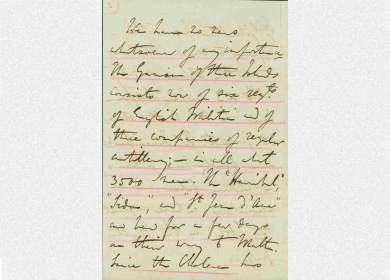 We have no news
whatsoever of any importance
The Garrison of these Islands
consists now of six regts.
of English Militia and of
three companies of regular
artillery, – in all abt
3500 men. The "Hannibal",
"Sidon", and "St. Jean d'Acre"
are here for a few days
on their way to Malta.
Since the has